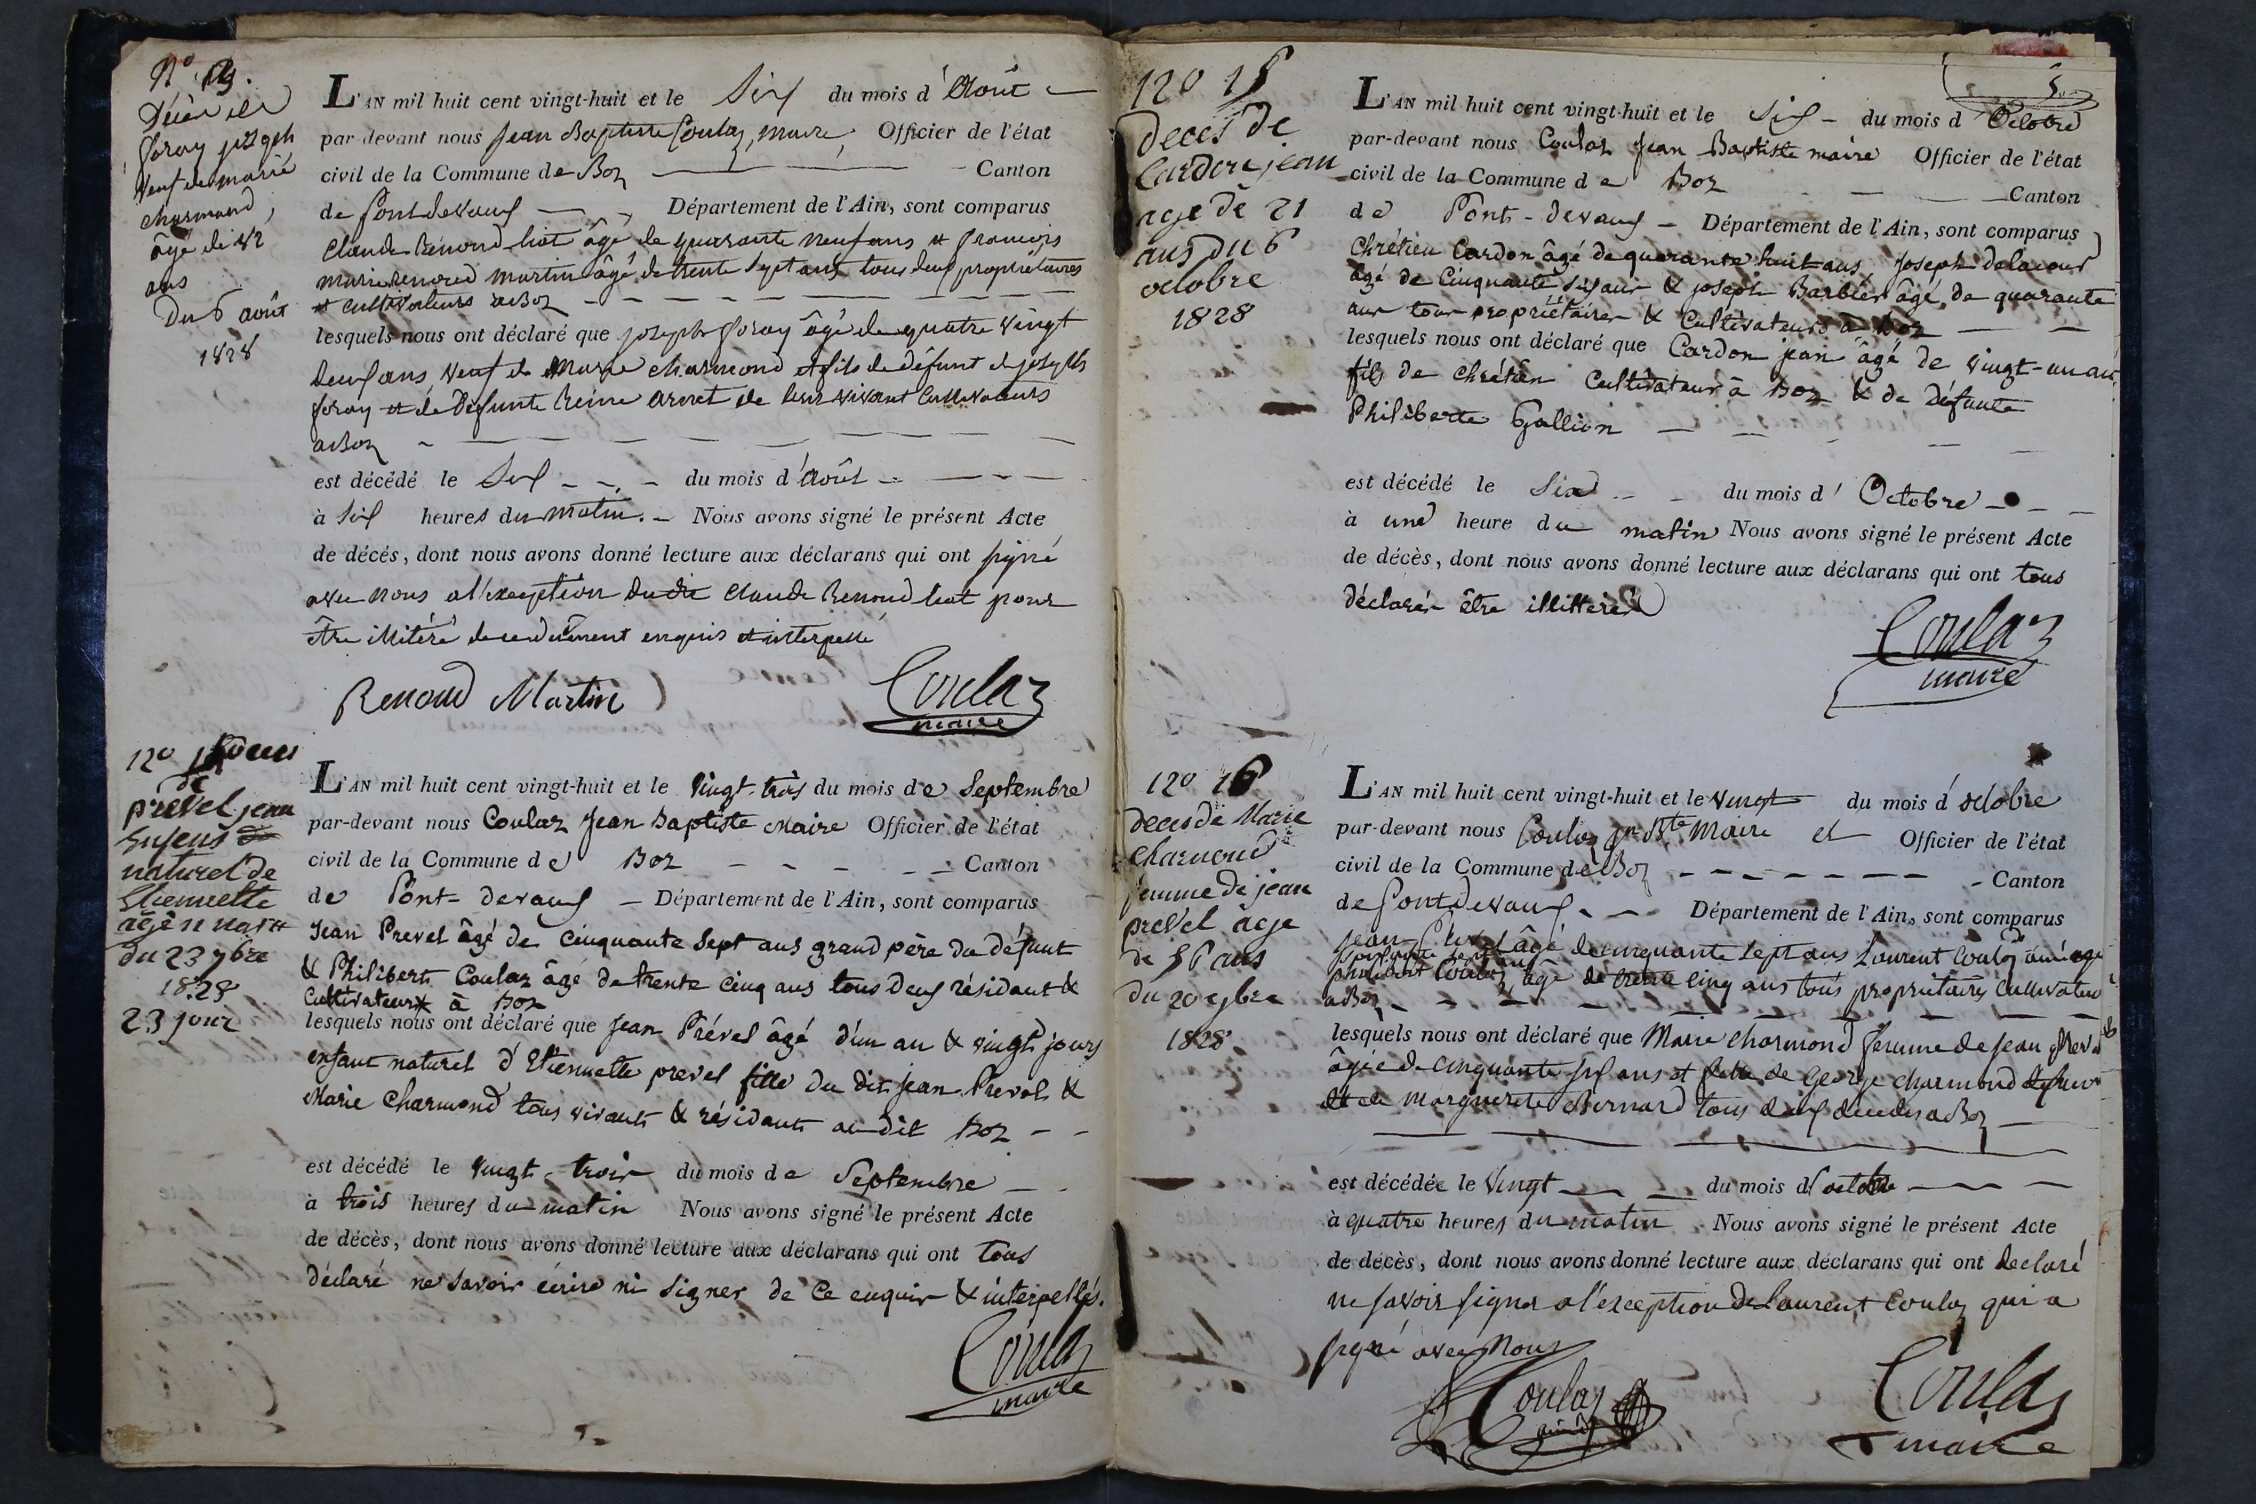 Nº 13.
Décès de
foray joseph
veuf de marie
charmond,
âgé de 82
ans
Du 6 août
1828
L'AN mil huit cent vingt-huit et le Six du mois d'Août
par-devant nous Jean Baptiste Coulaz, maire, Officier de l'état
civil de la Commune de Boz Canton
de Pontdevaux Département de l'Ain, sont comparus
Claude Renoud liat âgé de quarante neuf ans et françois
marie renoud martin âgé de trente sept ans tous deux propriétaires
et cultivateurs a Boz
lesquels nous ont déclaré que joseph foray âgé de quatre vingt
deux ans, veuf de Marie charmond et fils de défunt de joseph
foray et de défunte Reine de leur vivant Cultivateurs
a Boz
est décédé le Six du mois d'août
à six heures du matin. Nous avons signé le présent Acte
de décés, dont nous avons donné lecture aux déclarans qui ont signé
avec nous a l'exception du dit Claude Renoud liat pour
être illitéré de ce dument enquis et interpellé
Renoud Martin
Coulaz
maire
120
de
prevel jean
enfens
naturel de
Etiennette
agé
du 23 7bre
1828
23 jour
L'AN mil huit cent vingt-huit et le vingt-trois du mois de Septembre
par-devant nous Coulaz Jean Baptiste Maire Officier de l'état
civil de la Commune de Boz Canton
de Pont-devaux Département de l'Ain, sont comparus
Jean Prevel âgé de cinquante sept ans grand père du défunt
& Philibert Coulaz âgé de trente cinq ans tous deux résidant &
Cultivateurs à Boz
lesquels nous ont déclaré que Jean Prével âgé d'un an & vingt jours
enfant naturel d'Etiennette prevel fille du dit Jean Prevel &
Marie Charmond tous vivants & résidants au dit Boz
est décédé le vingt-trois du mois de Septembre
à trois heures du matin Nous avons signé le présent Acte
de décès, dont nous avons donné lecture aux déclarans qui ont tous
déclaré ne savoir écrire ni signer de ce enquis & interpellés.
Coulaz
maire
5
120 15
deces de
Cardon jean
age de 21
ans du 6
octobre
1828
L'AN mil huit cent vingt-huit et le Six du mois d'Octobre
par-devant nous Coulaz Jean Baptiste maire Officier de l'état
civil de la Commune de Boz Canton
de Pont-devaux Département de l'Ain, sont comparus
Chrétien Cardon âgé de quarante huit ans, Joseph delacour
âgé de Cinquante six ans & joseph Barbier âgé de quarante
ans tous propriétaires & Cultivateurs à Boz
lesquels nous ont déclaré que Cardon jean âgé de vingt-un an
fils de Chrétien Cultivateur à Boz & de défunte
Philiberte Gallion
est décédé le Six du mois d'Octobre
à une heure du matin Nous avons signé le présent Acte
de décès, dont nous avons donné lecture aux déclarans qui ont tous
déclarés être illitterés
Coulaz
maire
120 16
deces de Marie
Charmond
femme de jean
prevel age
de 56 ans
du 20
1828
L'AN mil huit cent vingt-huit et le vingt du mois d'octobre
par-devant nous Coulaz Jn Bte Maire et Officier de l'état
civil de la Commune de Boz Canton
de Pontdevaux Département de l'Ain, sont comparus
jean Prevel âgé de cinquante sept ans Laurent Coulaz ainé age
soixante sept ans
philibert Coulaz, âgé de trente cinq ans tous propriétaires cultivateurs
a Boz
lesquels nous ont déclaré que Marie charmond femme de jean prevel
âgée de cinquante six ans et fille de George charmond
et de Marguerite Bernard tous deux decedes a Boz
est décédée le Vingt du mois d'octobre
à quatre heures du matin Nous avons signé le présent Acte
de décès, dont nous avons donné lecture aux déclarans qui ont declaré
ne savoir signer a l'exception de Laurent Coulaz qui a
signé avec Nous
Coulaz
ainé
Coulaz
maire